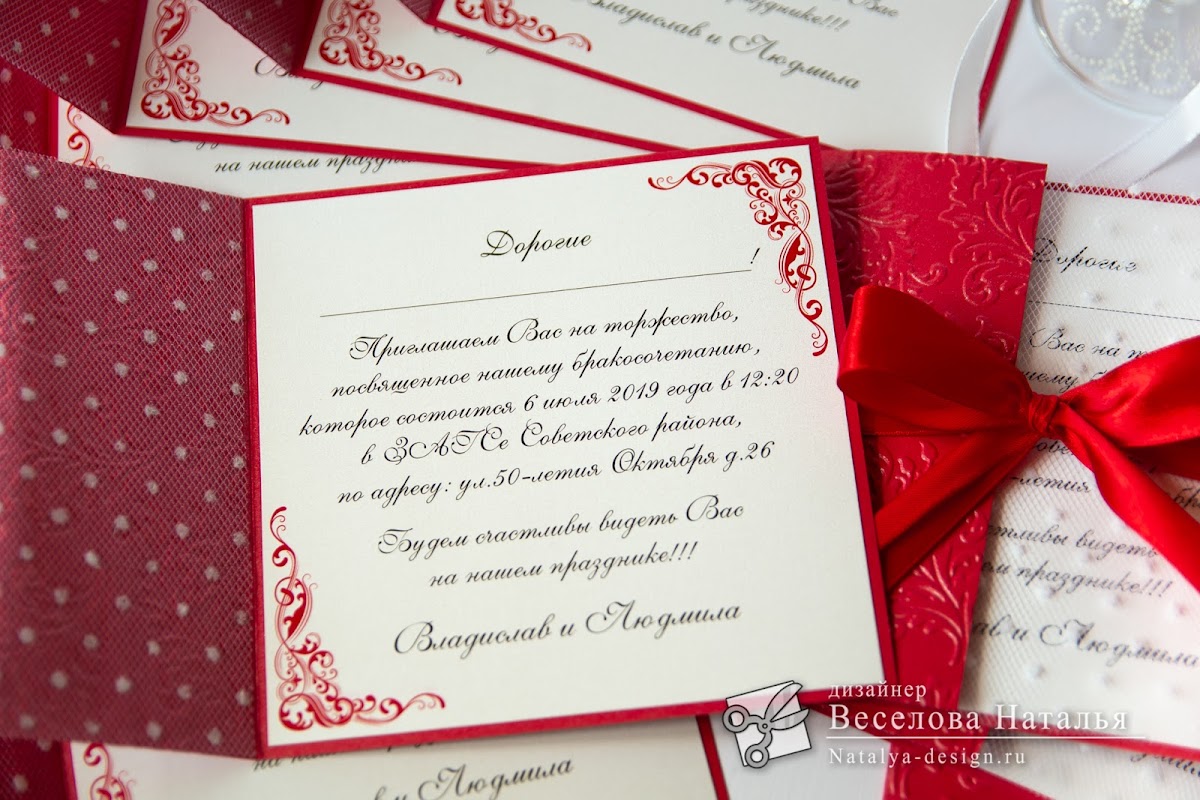 Вас
празднике!!!
Владислав и Людмила
на нашем
Дорогие
!
Приглашаем Вас на торжество,
посвященное нашему бракосочетанию,
которое состоится 6 июля 2019 года в 12:20
в ЗАГСе Советского района,
по адресу: ул.50-летия Октября д.26
Будем счастливы видеть Вас
на нашем празднике!!!
Владислав и Людмила
Дорогие
Вас на
видеть
празднике!!!
и Людмила
на нашем
Людмила
дизайнер
Веселова Наталья
Natalya-design.ru